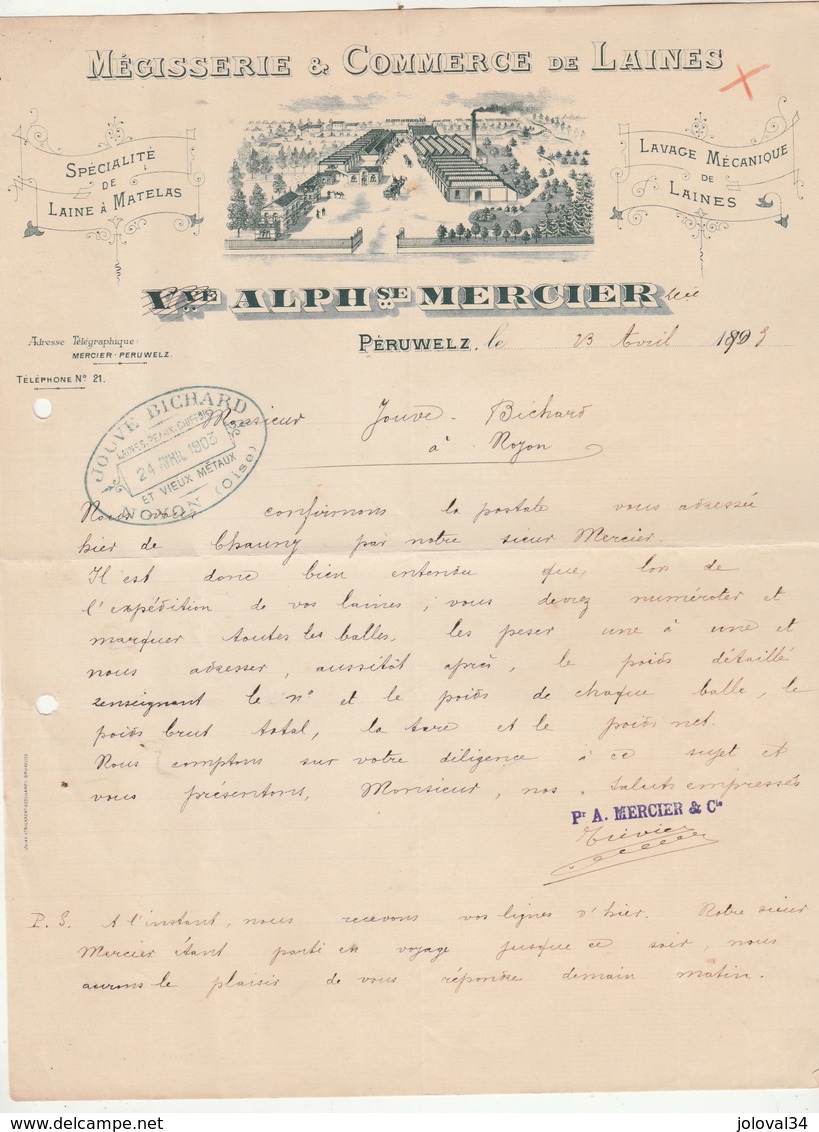 MÉGISSERIE & COMMERCE DE LAINES
SPÉCIALITÉ
DE
LAINE À MATELAS
LAVAGE MÉCANIQUE
DE
LAINES
VVE ALPHSE MERCIER
Adresse Télégraphique:
MERCIER-PERUWELZ.
TÉLÉPHONE No 21.
PÉRUWELZ, le 23 Avril 1903
JOUVE BICHARD
LAINES-PEAUX-CHIFFONS
24 AVRIL 1903
ET VIEUX MÉTAUX
NOYON (Oise)
Monsieur Jouve-Bichard
à Noyon
Nous vous confirmons la postale vous adressée
hier de Chauny par notre sieur Mercier.
Il est donc bien entendu que, lors de
l'expédition de vos laines, vous devrez numéroter et
marquer toutes les balles, les peser une à une et
nous adresser, aussitôt après, le poids détaillé
renseignant le no et le poids de chaque balle, le
poids brut total, la tare et le poids net.
Nous comptons sur votre diligence à ce sujet et
vous présentons, Monsieur, nos saluts empressés
Pr A. MERCIER & Cie
P.S. A l'instant, nous recevons vos lignes d'hier. Notre sieur
Mercier étant parti en voyage jusque ce soir, nous
aurons le plaisir de vous répondre demain matin.
joloval34